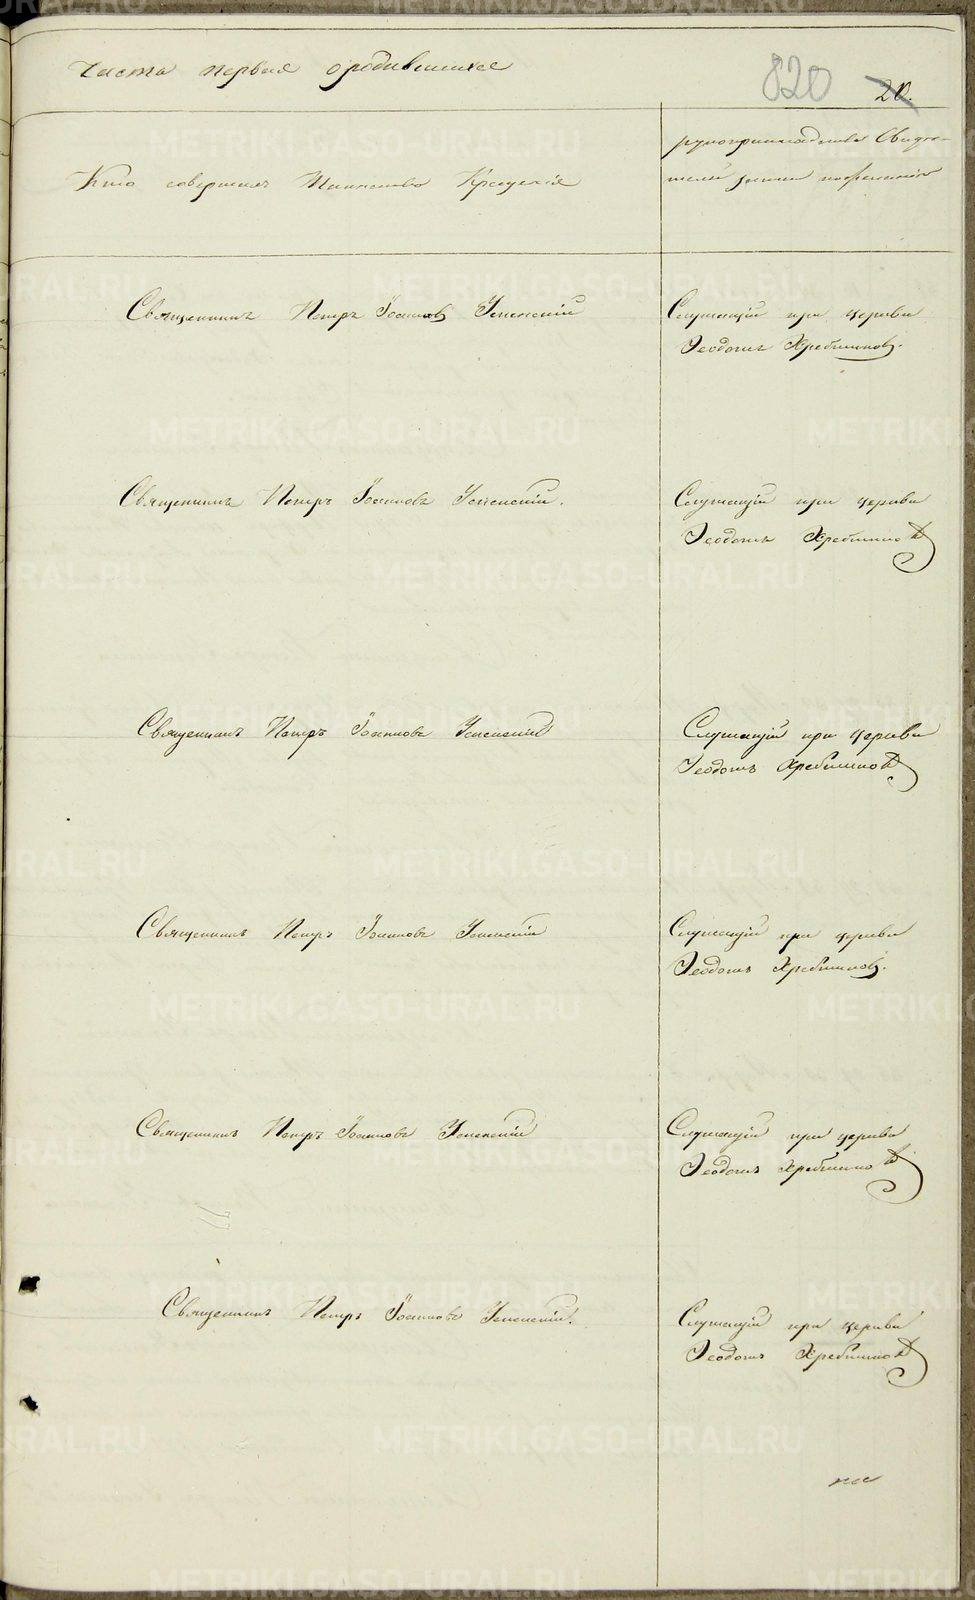 часть первая о родившихся
820 20.
Кто совершал Таинство Крещенія
рукоприкладство Свидѣ-
телей записи по желанію
Священникъ Петръ Іоанновъ Успенскій
Служащій при церкви
Ѳеодотъ Хребтиковъ.
Священникъ Петръ Іоанновъ Успенскій.
Служащій при церкви
Ѳеодотъ Хребтиковъ
Священникъ Петръ Іоанновъ Успенскій
Служащій при церкви
Ѳеодотъ Хребтиковъ
Священникъ Петръ Іоанновъ Успенскій
Служащій при церкви
Ѳеодотъ Хребтиковъ.
Священникъ Петръ Іоанновъ Успенскій
Служащій при церкви
Ѳеодотъ Хребтиковъ
Священникъ Петръ Іоанновъ Успенскій.
Служащій при церкви
Ѳеодотъ Хребтиковъ
METRIKI.GASO-URAL.RU